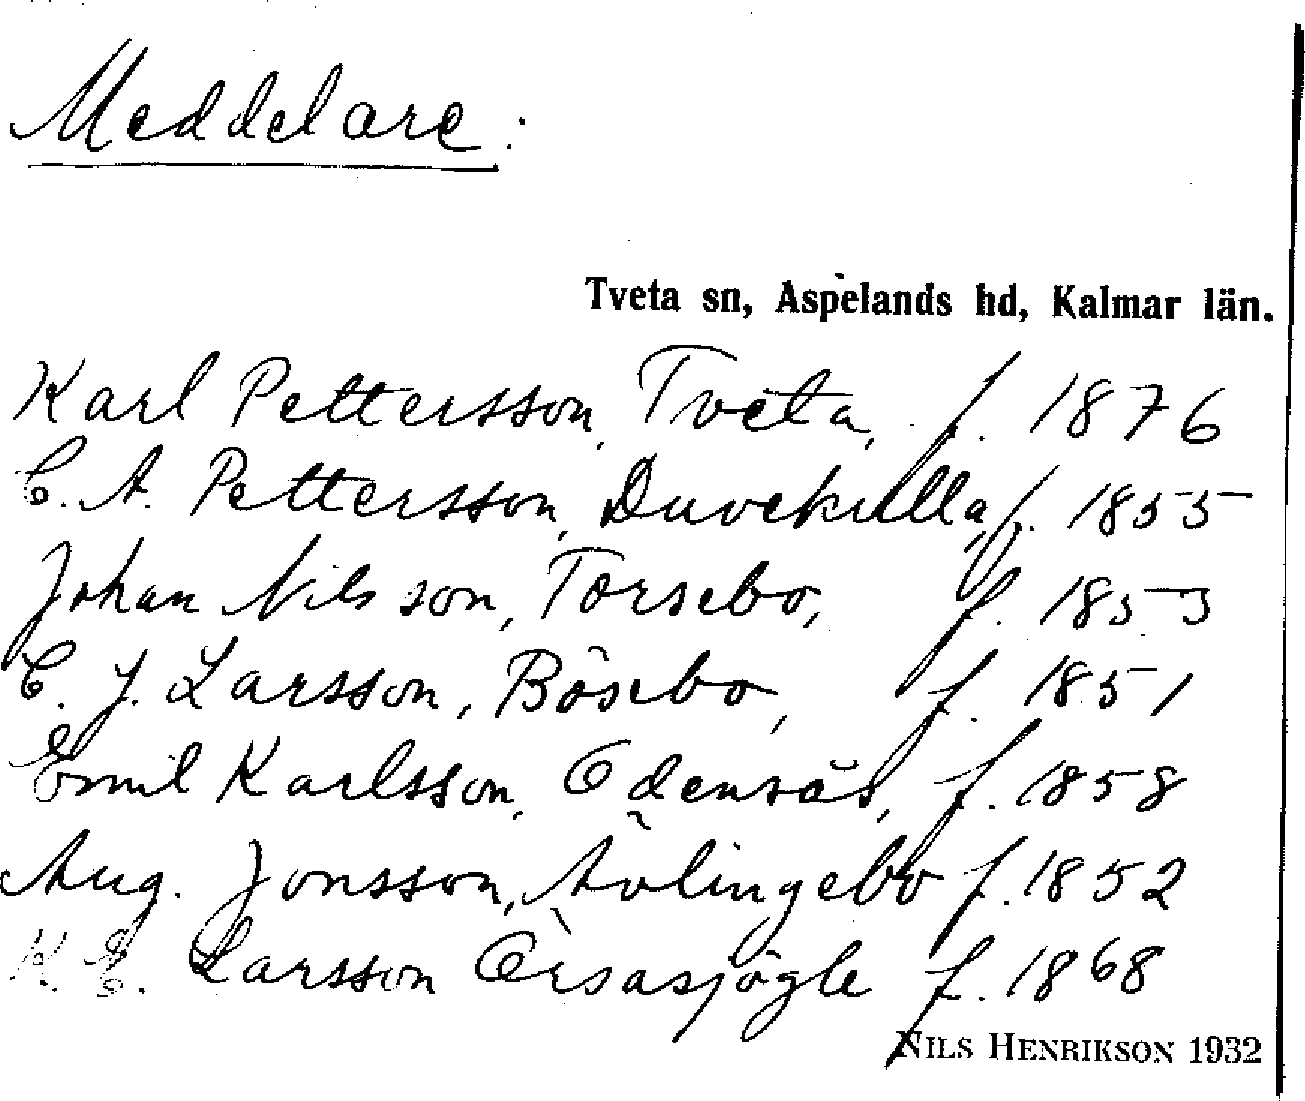 Meddelare:
Tveta sn, Aspelands hd, Kalmar län.
Karl Pettersson, Tveta, f. 1876
C. A. Pettersson, Duvekulla, f. 1855
Johan Nilsson, Torsebo, f. 1853
C. J. Larsson, Bösebo, f. 1851
Emil Karlsson, Odensås, f. 1858
Aug. Jonsson, Åvlingebo f. 1852
K. E. Larsson Örsasjögle f. 1868
NILS HENRIKSON 1932